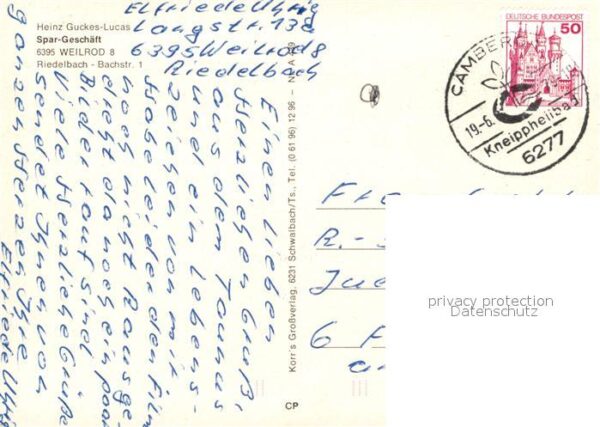 Heinz Guckes-Lucas
Spar-Geschäft
6395 WEILROD 8
Riedelbach - Bachstr. 1
Elfriede Uhrig
Langstr. 13a
6395 Weilrod 8
Riedelbach
Einen lieben
herzlichen Gruß,
aus dem Taunus
und ein Lebens-
zeichen von mir
Habe leider den Film
noch nicht Rausge-
da noch ein paar
Bilder drauf sind
Viele herzliche Grüße
sendet Ihnen von
ganzen Herzen Ihre
Elfriede Uhrig
Korr's Großverlag, 6231 Schwalbach/Ts., Tel. (0 61 96) 12 96
CP
DEUTSCHE BUNDESPOST
50
CAMBERG
19.-6.
Kneippheilbad
6277
Frau
R.-
6 F
privacy protection
Datenschutz